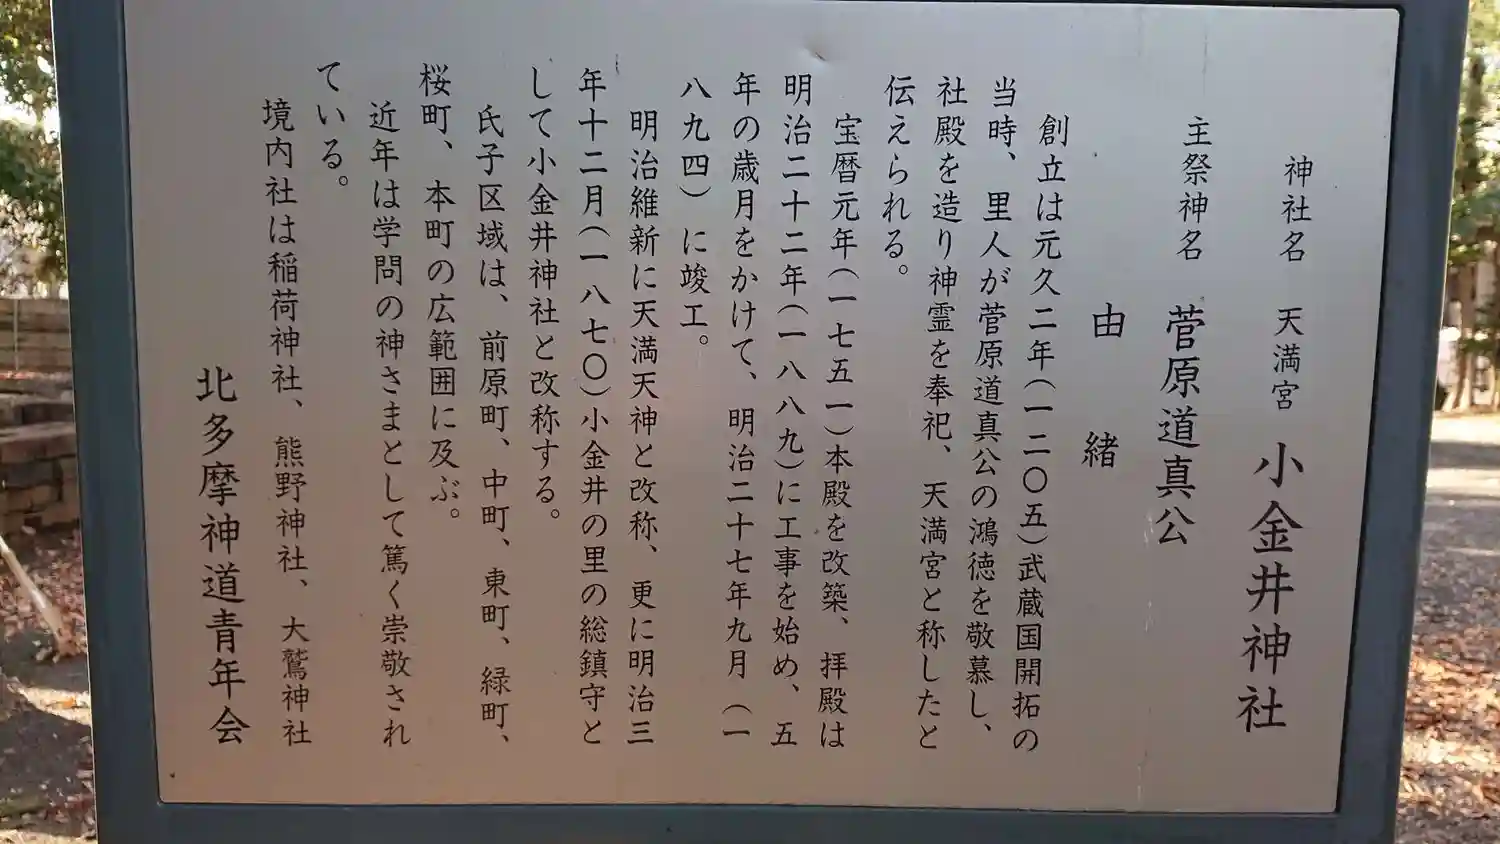 神社名　天満宮　小金井神社
主祭神名　菅原道真公
由　緒
創立は元久二年(一二〇五)武蔵国開拓の
当時、里人が菅原道真公の鴻徳を敬慕し、
社殿を造り神霊を奉祀、天満宮と称したと
伝えられる。
宝暦元年(一七五一)本殿を改築、拝殿は
明治二十二年(一八八九)に工事を始め、五
年の歳月をかけて、明治二十七年九月(一
八九四)に竣工。
明治維新に天満天神と改称、更に明治三
年十二月(一八七〇)小金井の里の総鎮守と
して小金井神社と改称する。
氏子区域は、前原町、中町、東町、緑町、
桜町、本町の広範囲に及ぶ。
近年は学問の神さまとして篤く崇敬され
ている。
境内社は稲荷神社、熊野神社、大鷲神社
北多摩神道青年会